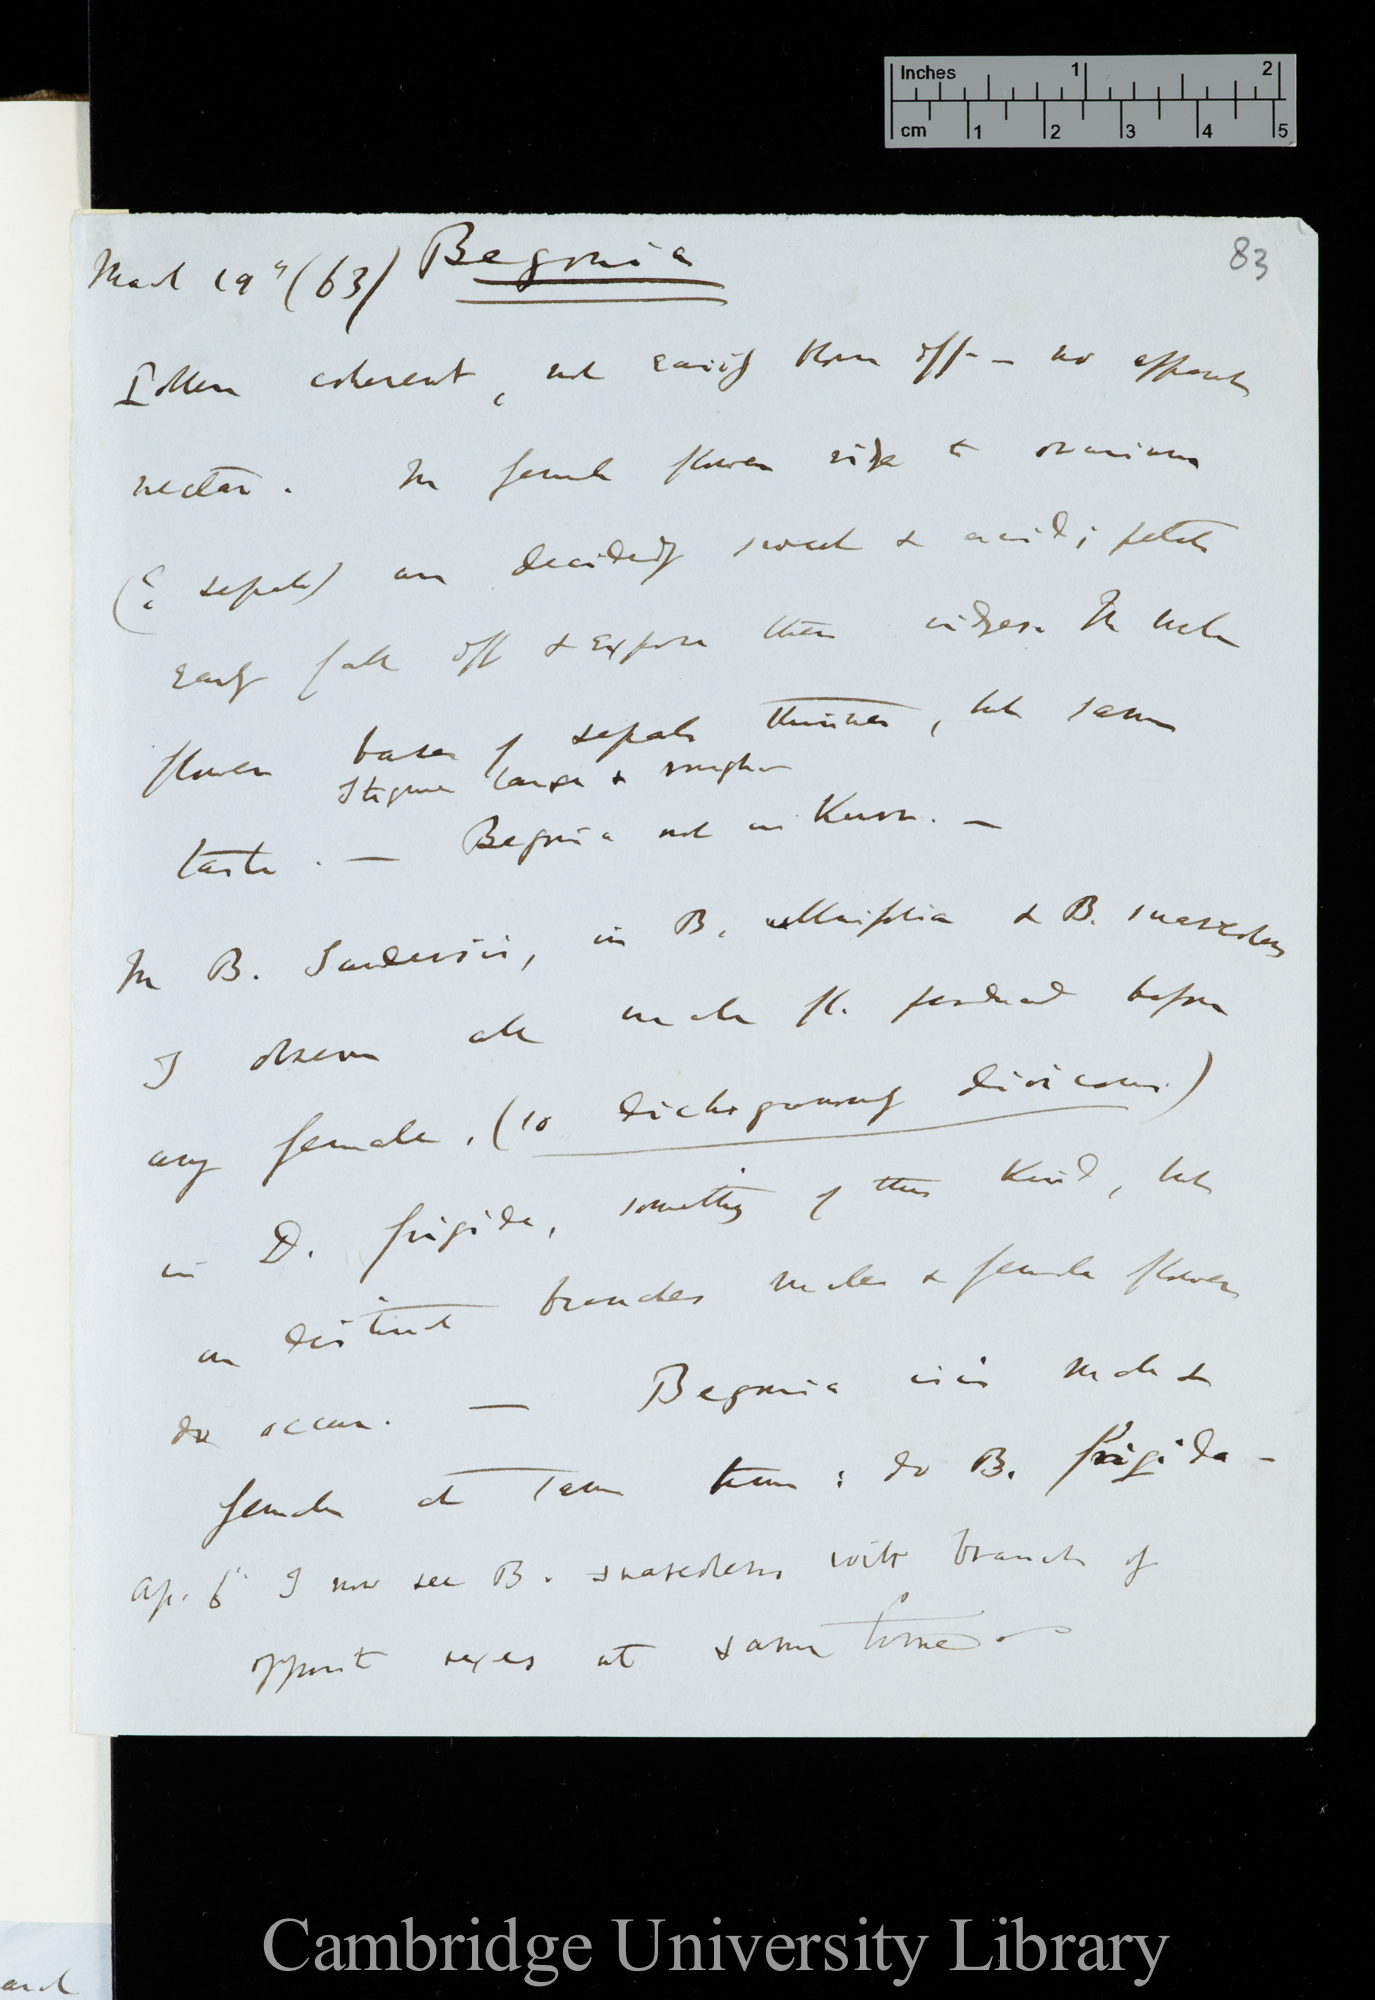 Inches 1 2
cm 1 2 3 4 5
83
March 19th (63) Begonia
Pollen coherent, not easily blown off — no apparent
nectar. In female flower ridge to ovarium
( sepals) are decidedly sweet & acid; petals
early fall off & expose these ridges. In male
flowers bases of sepals thinner, but same
Stigma large & rough
taste. — Begonia not in Kurr. —
In B. Sandersii, in B. & B.
I observe all male fl. produced before
any female, (so dichogamously dioicous.)
in B. frigida, something of this kind, but
on distinct branches males & female flowers
do occur. — Begonia male &
female at same time: do B. frigida —
Ap. 6th I now see B. with branches of
opposite sexes at same time
Cambridge University Library